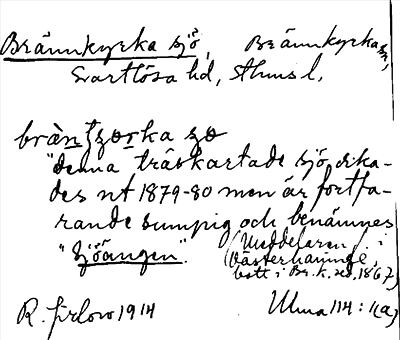 Brännkyrka sjö, Brännkyrka sn,
Svartlösa hd, Sthms l,
"denna träskartade sjö dika-
des ut 1879-80 men är fortfa-
rande sumpig och benämnes
"Sjöängen". (Meddelaren f. i
Västerhaninge,
bott i Br.k. sed. 1867)
R. Jirlow 1914 Ulma 114:1(a)